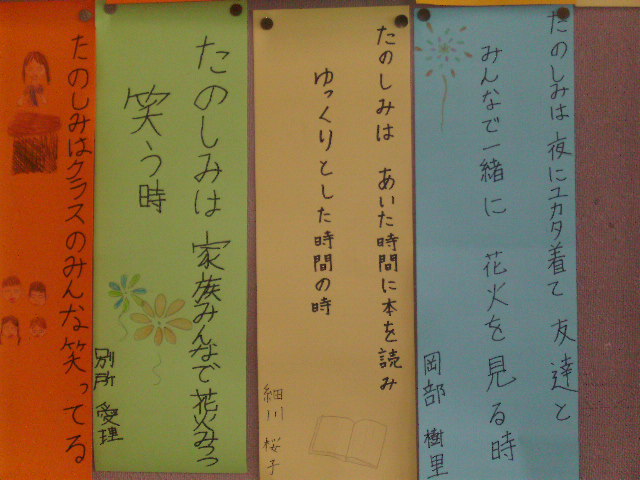 たのしみは 夜にユカタ着て 友達と
みんなで一緒に 花火を見る時
岡部 樹里
たのしみは あいた時間に本を読み
ゆっくりとした時間の時
細川 桜子
たのしみは 家族みんなで花火みつ
笑う時
別所 愛理
たのしみはクラスのみんな笑ってる